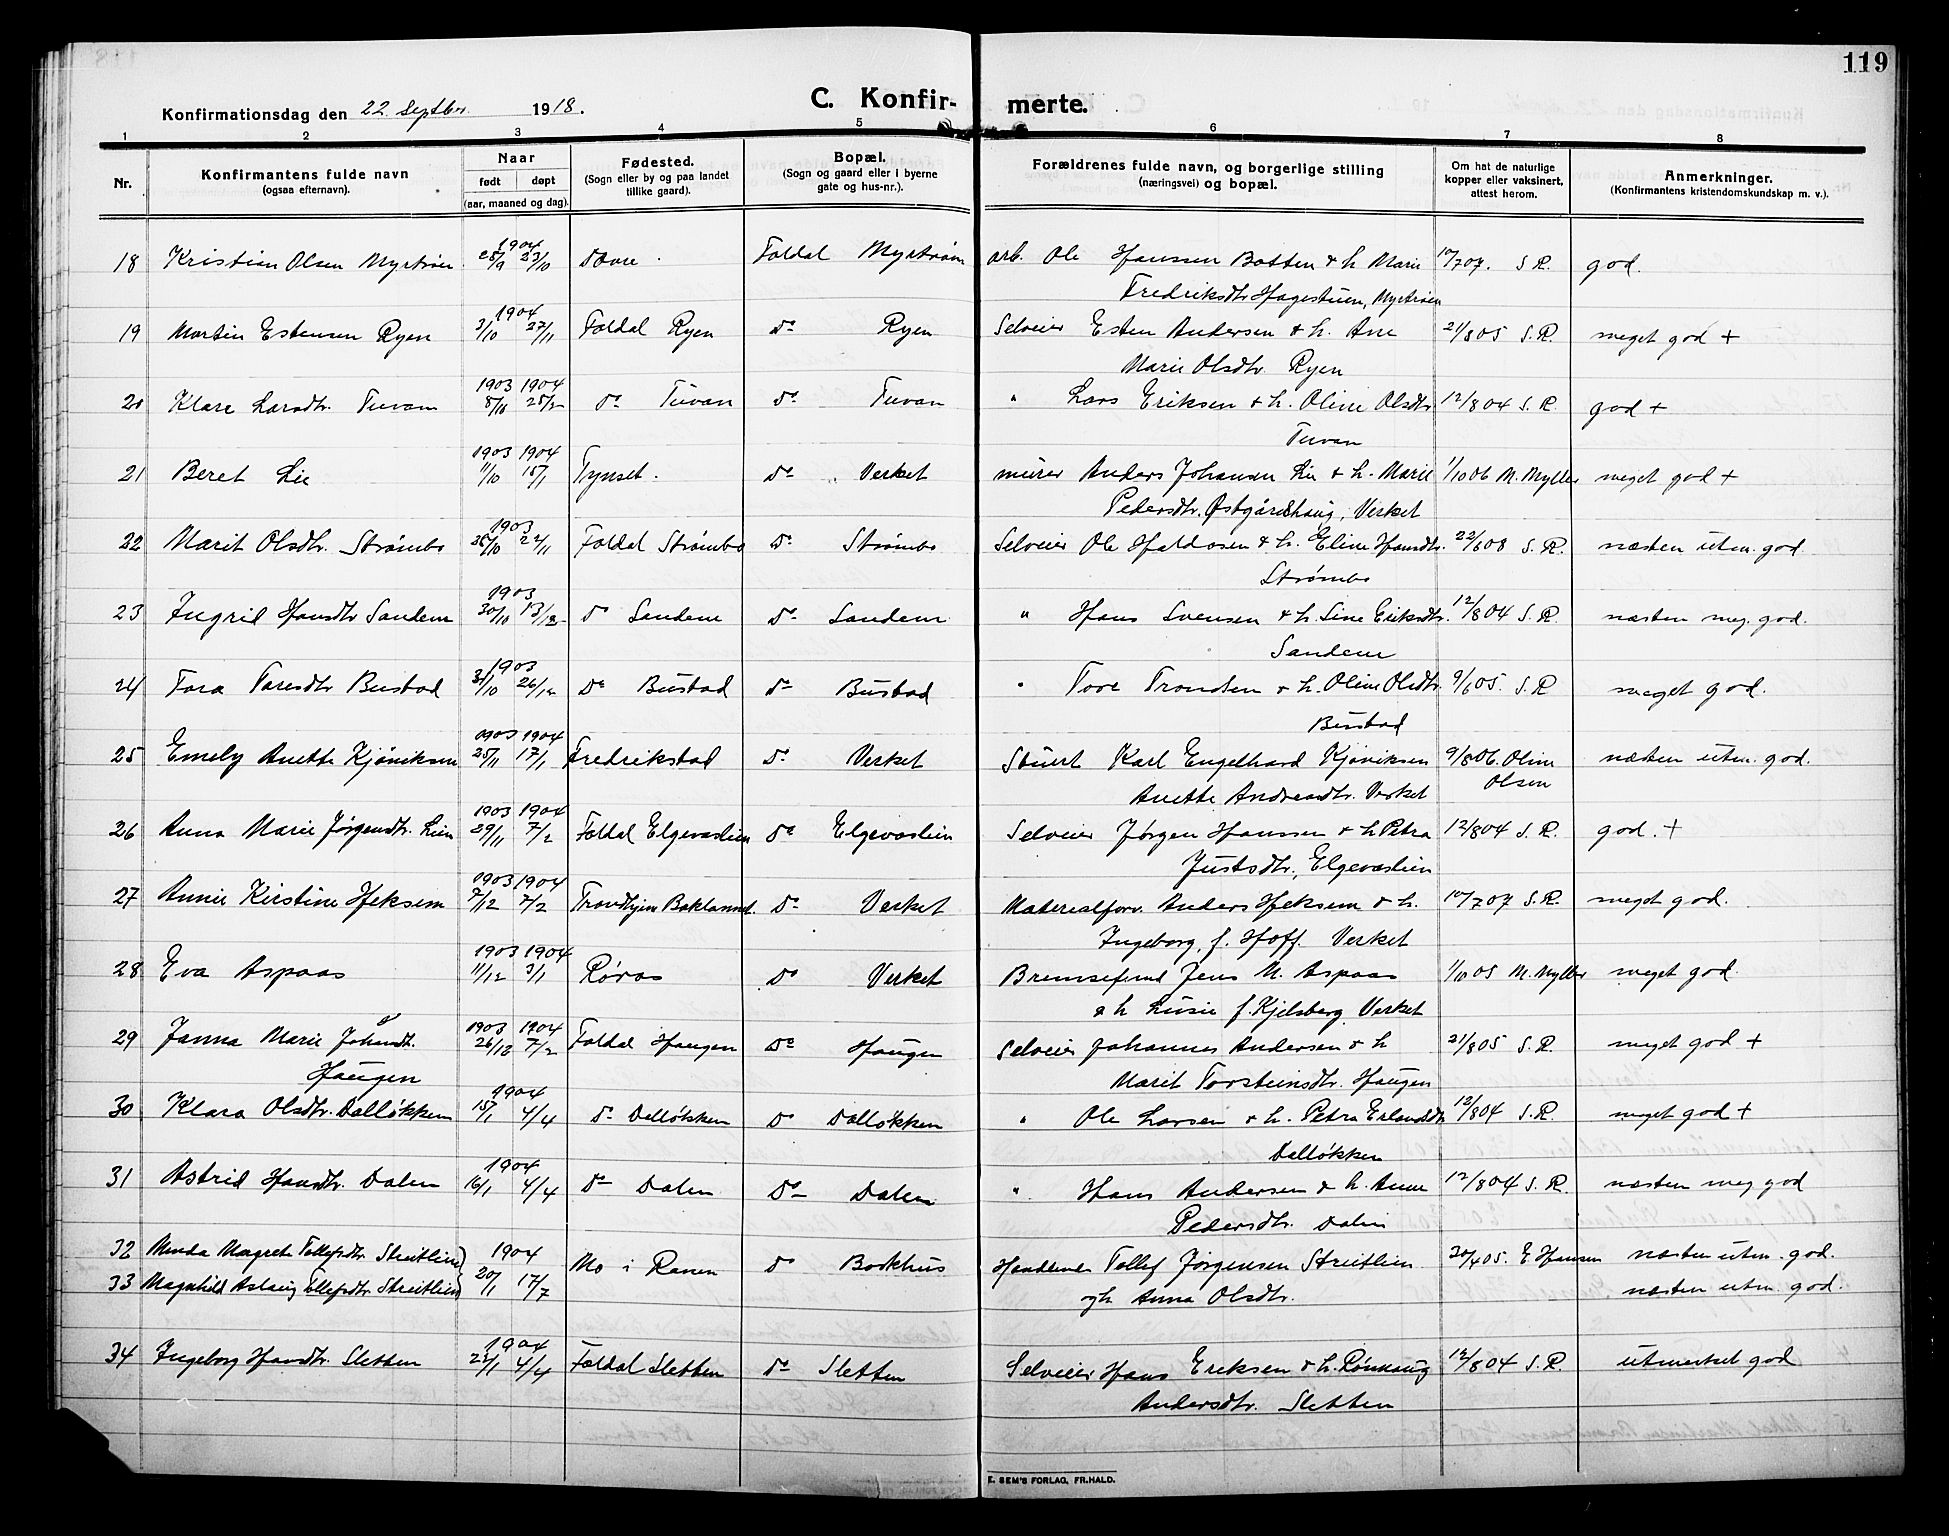 119
C. Konfirmerte.
Konfirmationsdag den 22. Septbr. 1918.
1 2 3 4 5 6 7 8
Nr. Konfirmantens fulde navn (ogsaa efternavn). Naar født døpt (aar, maaned og dag). Fødested. (Sogn eller by og paa landet tillike gaard). Bopæl. (Sogn og gaard eller i byerne gate og hus-nr.). Forældrenes fulde navn, og borgerlige stilling (næringsvei) og bopæl. Om hat de naturlige kopper eller vaksinert, attest herom. Anmerkninger. (Konfirmantens kristendomskundskap m. v.).
1904
18 Kristian Olsen Myrtrøen 25/9 23/10 Dovre. Foldal Myrtrøen arb. Ole Hanssen Botten & h. Marie 10/7 07. S. R. god.
Fredriksdtr. Hagestuen, Myrtrøen
1904
19 Martin Estensen Ryen 3/10 27/11 Foldal Ryen Do Ryen Selveier Esten Andersen & h. Ane 21/8 05 S. R. meget god +
Marie Olsdtr. Ryen
1903 1904
20 Klare Larsdtr. Tuvan 8/10 25/2 Do Tuvan Do Tuvan " Lars Eriksen & h. Oline Olsdtr. 12/8 04 S. R. god +
Tuvan
1903 1904
21 Beret Lie 11/10 15/1 Tynset. Do Verket murer Anders Johansen Lie & h. Marie 1/10 06 M. Myller meget god +
Pedersdtr. Østgårdshaug, Verket
1903
22 Marit Olsdtr. Strømbo 26/10 22/11 Foldal Strømbo Do Strømbo Selveier Ole Haldosen & h. Eline Hansdtr. 22/6 08 S. R. næsten utm. god
Strømbo
1903
23 Ingrid Hansdtr Sandem 30/10 13/12 Do Sandem Do Sandem " Hans Svensen & h. Sine Eriksdtr. 12/8 04 S. R. næsten meg. god.
Sandem
1903
24 Tora Toresdtr Bustad 31/10 26/12 Do Bustad Do Bustad " Tore Trondsen & h. Oline Olsdtr. 9/6 05. S. R meget god.
Bustad
1903 1904
25 Emely Anette Kjøniksen 25/11 17/1 Fredrikstad Do Verket Stuert Karl Engelhard Kjøniksen 9/8 06. Oline Olsen næsten utm. god.
Anette Andreasdtr. Verket
1903 1904
26 Anna Marie Jørgensdtr. Lien 29/11 7/2 Foldal Elgevaslien Do Elgevaslien Selveier Jørgen Hanssen & h Petra 12/8 04 S. R. god. +
Justsdtr., Elgevaslien
1903 1904
27 Annie Kirstine Heksem 7/12 7/2 Trondhjem Baklannet. Do Verket Materialforv. Anders Heksem & h. 10/7 07 S. R. meget god.
Ingeborg, f. Hoff. Verket
1903 1904
28 Eva Aspaas 11/12 3/1 Røros Do Verket Bremsefører Jens M. Aspaas 1/10 05 M. Myller meget god.
& h Lusie f. Kjelsberg Verket
1903 1904
29 Janna Marie Johansdt. 26/12 7/2 Foldal Haugen Do Haugen Selveier Johannes Andersen & h 21/8 05 S. R. meget god +
Haugen Marit Torsteinsdtr. Haugen
1904
30 Klara Olsdtr. Dalløkken 15/1 4/4 Do Dalløkken Do Dalløkken " Ole Larsen & h. Petra Erlandsdtr. 12/8 04 S. R. meget god +
Dalløkken
1904
31 Astrid Hansdtr. Dalen 16/1 4/4 Do Dalen Do Dalen " Hans Andersen & h. Anne 12/8 04 S. R. næsten meg god
Pedersdtr. Dalen
32 Minda Margrete Tollefsdtr Streitlien 1904 Mo i Ranen Do Borkhus Tollef Jørgensen Streitlien 30/4 05. E Hansen næsten utm. god.
33 Magnhild Aslaug Tollefsdtr Streitlien 20/1 17/7 og h. Anna Olsdtr. næsten utm. god.
1904
34 Ingeborg Hansdtr. Sletten 4/4 Foldal Sletten Do Sletten Selveier Hans Eriksen & h. Rønnaug 12/8 04 S. R. utmerket god
Andersdtr. Sletten
E. SEM'S FORLAG, FR.HALD.